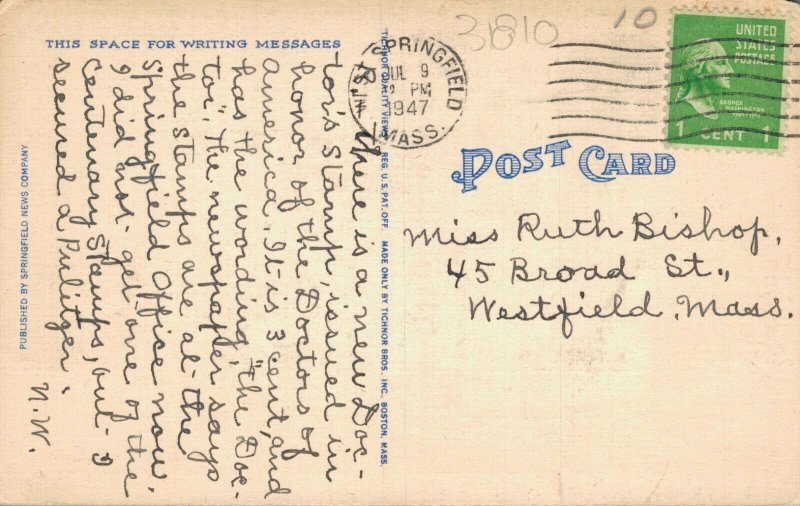 31810
10
THIS SPACE FOR WRITING MESSAGES
SPRINGFIELD
JUL 9
PM
1947
MASS.
UNITED
STATES
POSTAGE
GEORGE
WASHINGTON
1 CENT 1
POST CARD
Miss Ruth Bishop,
45 Broad St.,
Westfield, Mass.
There is a new Doc-
tor's Stamp, issued in
honor of the Doctors of
America. It is 3 cent, and
has the wording, "The Doc-
tor". The newspaper says
the stamps are at the
Springfield Office now.
I did not get one of the
Centenary Stamps, but I
secured a Pulitzer.
N.W.
PUBLISHED BY SPRINGFIELD NEWS COMPANY
TICHNOR QUALITY VIEWS REG. U. S. PAT. OFF. MADE ONLY BY TICHNOR BROS., INC., BOSTON, MASS.